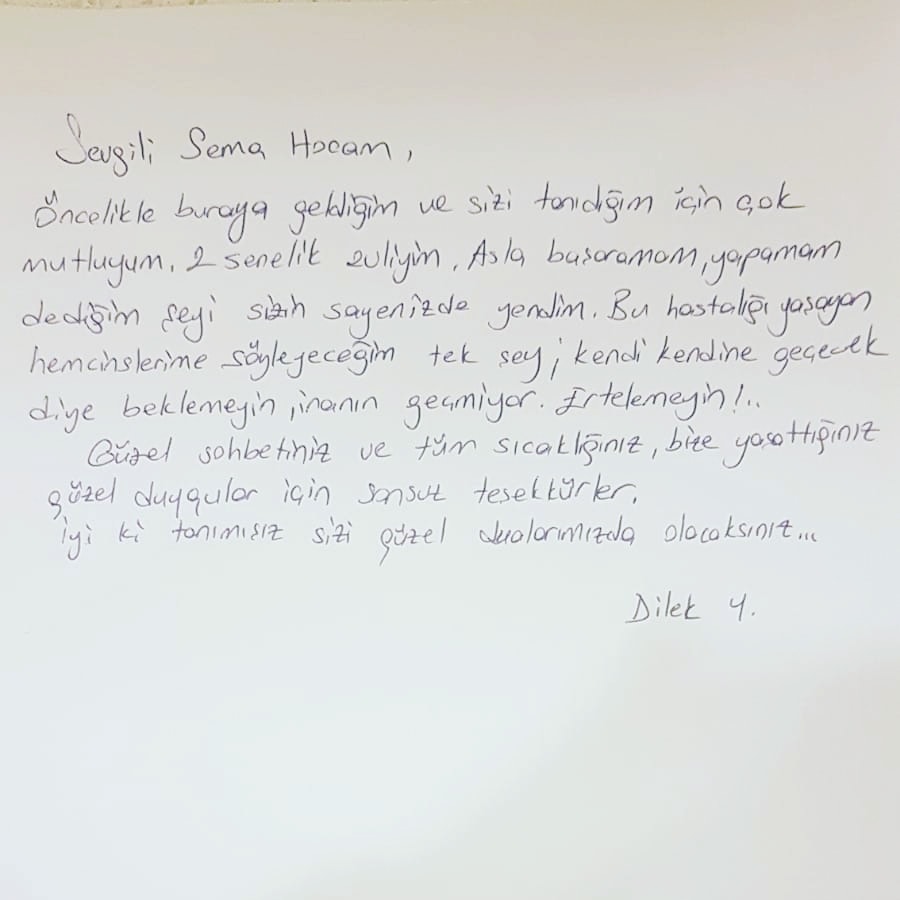 Sevgili Sema Hocam,
Öncelikle buraya geldiğim ve sizi tanıdığım için çok
mutluyum. 2 senelik evliyim. Asla başaramam, yapamam
dediğim şeyi sizin sayenizde yendim. Bu hastalığı yaşayan
hemcinslerime söyleyeceğim tek şey; kendi kendine geçecek
diye beklemeyin, inanın geçmiyor. Ertelemeyin!..
Güzel sohbetiniz ve tüm sıcaklığınız, bize yaşattığınız
güzel duygular için sonsuz teşekkürler.
İyi ki tanımışız sizi güzel dualarımızda olacaksınız...
Dilek Y.